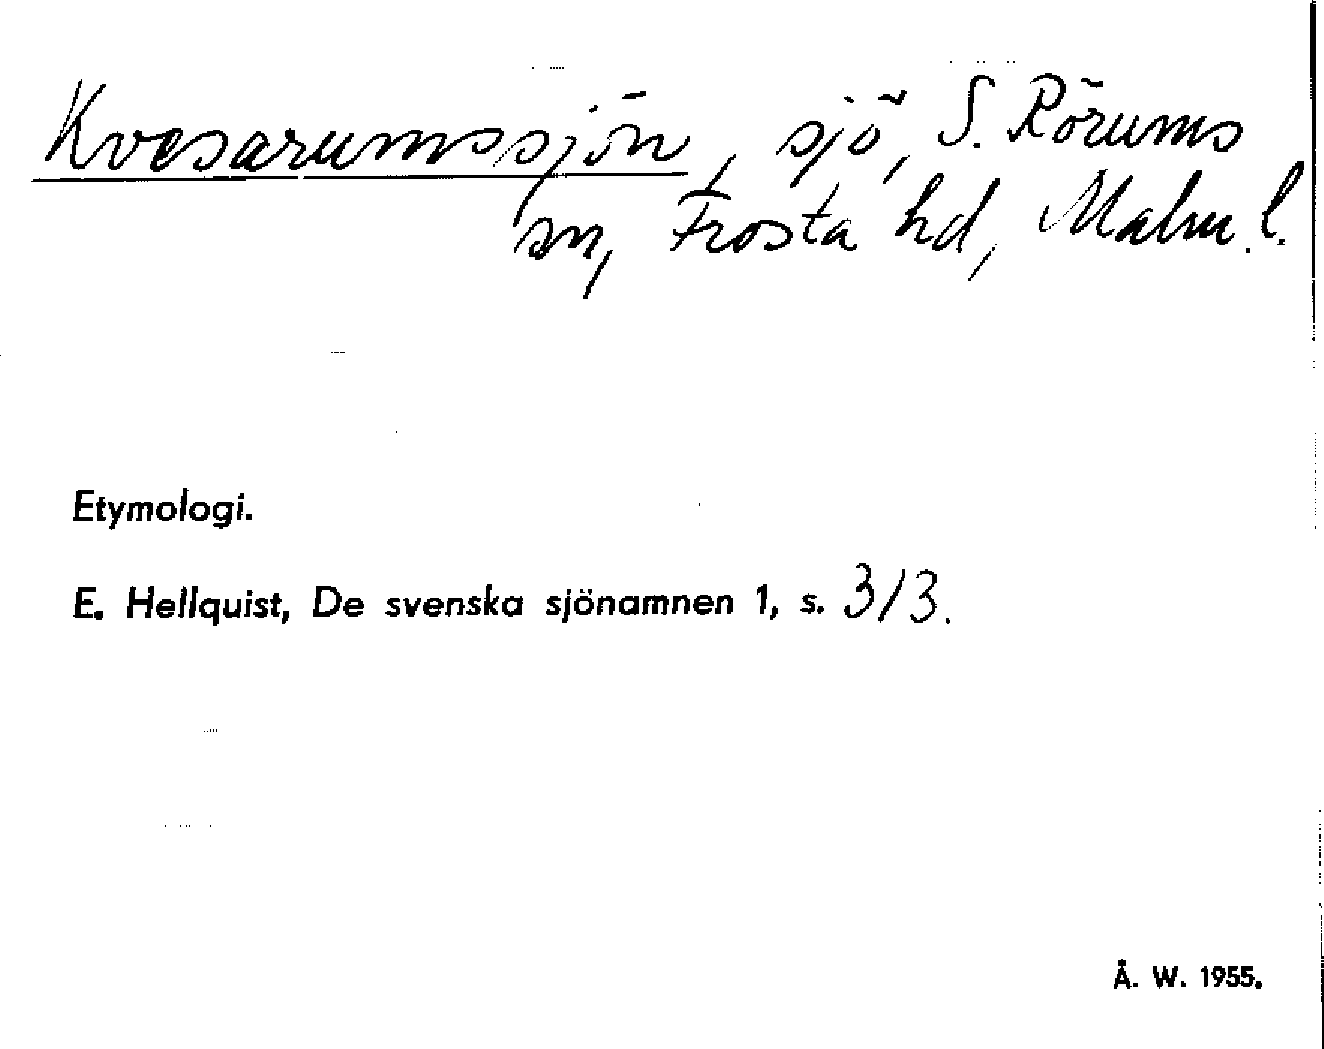 Kvesarumssjön, sjö, S. Rörums
sn, Frosta hd, Malm. l.
Etymologi.
E. Hellquist, De svenska sjönamnen 1, s. 313.
Å. W. 1955.